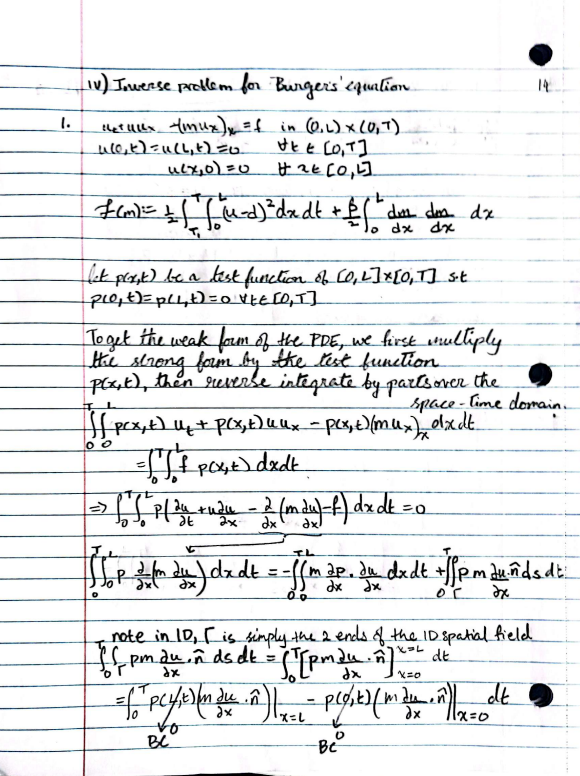 iv) Inverse problem for Burger's equation 14
1. u_t+uu_x -(mu_x)_x = f in (0,L)×(0,T)
u(0,t)=u(L,t)=0 ∀t ∈ [0,T]
u(x,0)=0 ∀ x ∈ [0,L]
F(m)= 1/2 ∫_{T_1}^T ∫_0^L (u-d)² dx dt + β/2 ∫_0^L dm/dx dm/dx dx
let p(x,t) be a test function of [0,L]×[0,T] s.t
p(0,t)=p(L,t)=0 ∀t∈[0,T]
To get the weak form of the PDE, we first multiply
the strong form by the test function
p(x,t), then reverse integrate by parts over the
space-time domain.
∫_0^T ∫_0^L p(x,t) u_t + p(x,t)uu_x - p(x,t)(mu_x)_x dx dt
= ∫_0^T ∫_0^L f p(x,t) dx dt
⇒ ∫_0^T ∫_0^L p(∂u/∂t + u ∂u/∂x - ∂/∂x (m ∂u/∂x) - f) dx dt = 0
∫_0^T ∫_0^L p ∂/∂x (m ∂u/∂x) dx dt = - ∫_0^T ∫_0^L m ∂p/∂x · ∂u/∂x dx dt + ∫_0^T ∫_Γ p m ∂u/∂x · n̂ ds dt
note in 1D, Γ is simply the 2 ends of the 1D spatial field
∫_0^T ∫_Γ pm ∂u/∂x · n̂ ds dt = ∫_0^T [pm ∂u/∂x · n̂]_{x=0}^{x=L} dt
= ∫_0^T p(L,t)(m ∂u/∂x · n̂)|_{x=L} - p(0,t)(m ∂u/∂x · n̂)|_{x=0} dt
0 0
BC BC